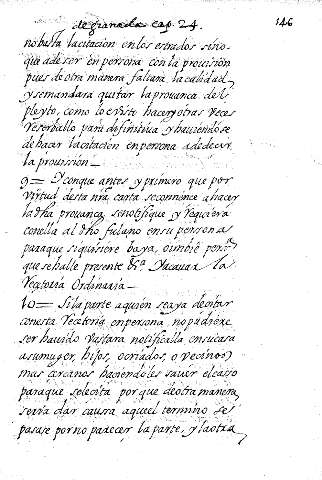 de granada cap. 24. 146
no basta la citacion en los estrados sino
que a de ser en persona con la provision
pues de otra manera faltara la calidad
y se mandara quitar la provança del
pleyto, como lo e visto hacer y otras veces
reserballo para difinitiva y haviendose
de hacer la citacion en persona a de decir
la provisión —
9 = Y con que antes y primero que por
virtud desta nra carta se comience a hacer
la dha provança, se notifique y requiera
con ella al dho fulano en su persona
para que si quisiere baya, o imbie perᵃ
que se halle presente &ª Y acava la
Receturia Ordinaria —
10 = Si la parte a quien se aya de citar
con esta Recetoria en persona, no pudiere
ser havido vastara notificalla en su casa
a su muger, hijos, o criados, o vecinos
mas cercanos haciendoles saver el caso
para que se lo cita porque de otra manera
seria dar causa a que el termino se
pasase por no parecer la parte, y la otra